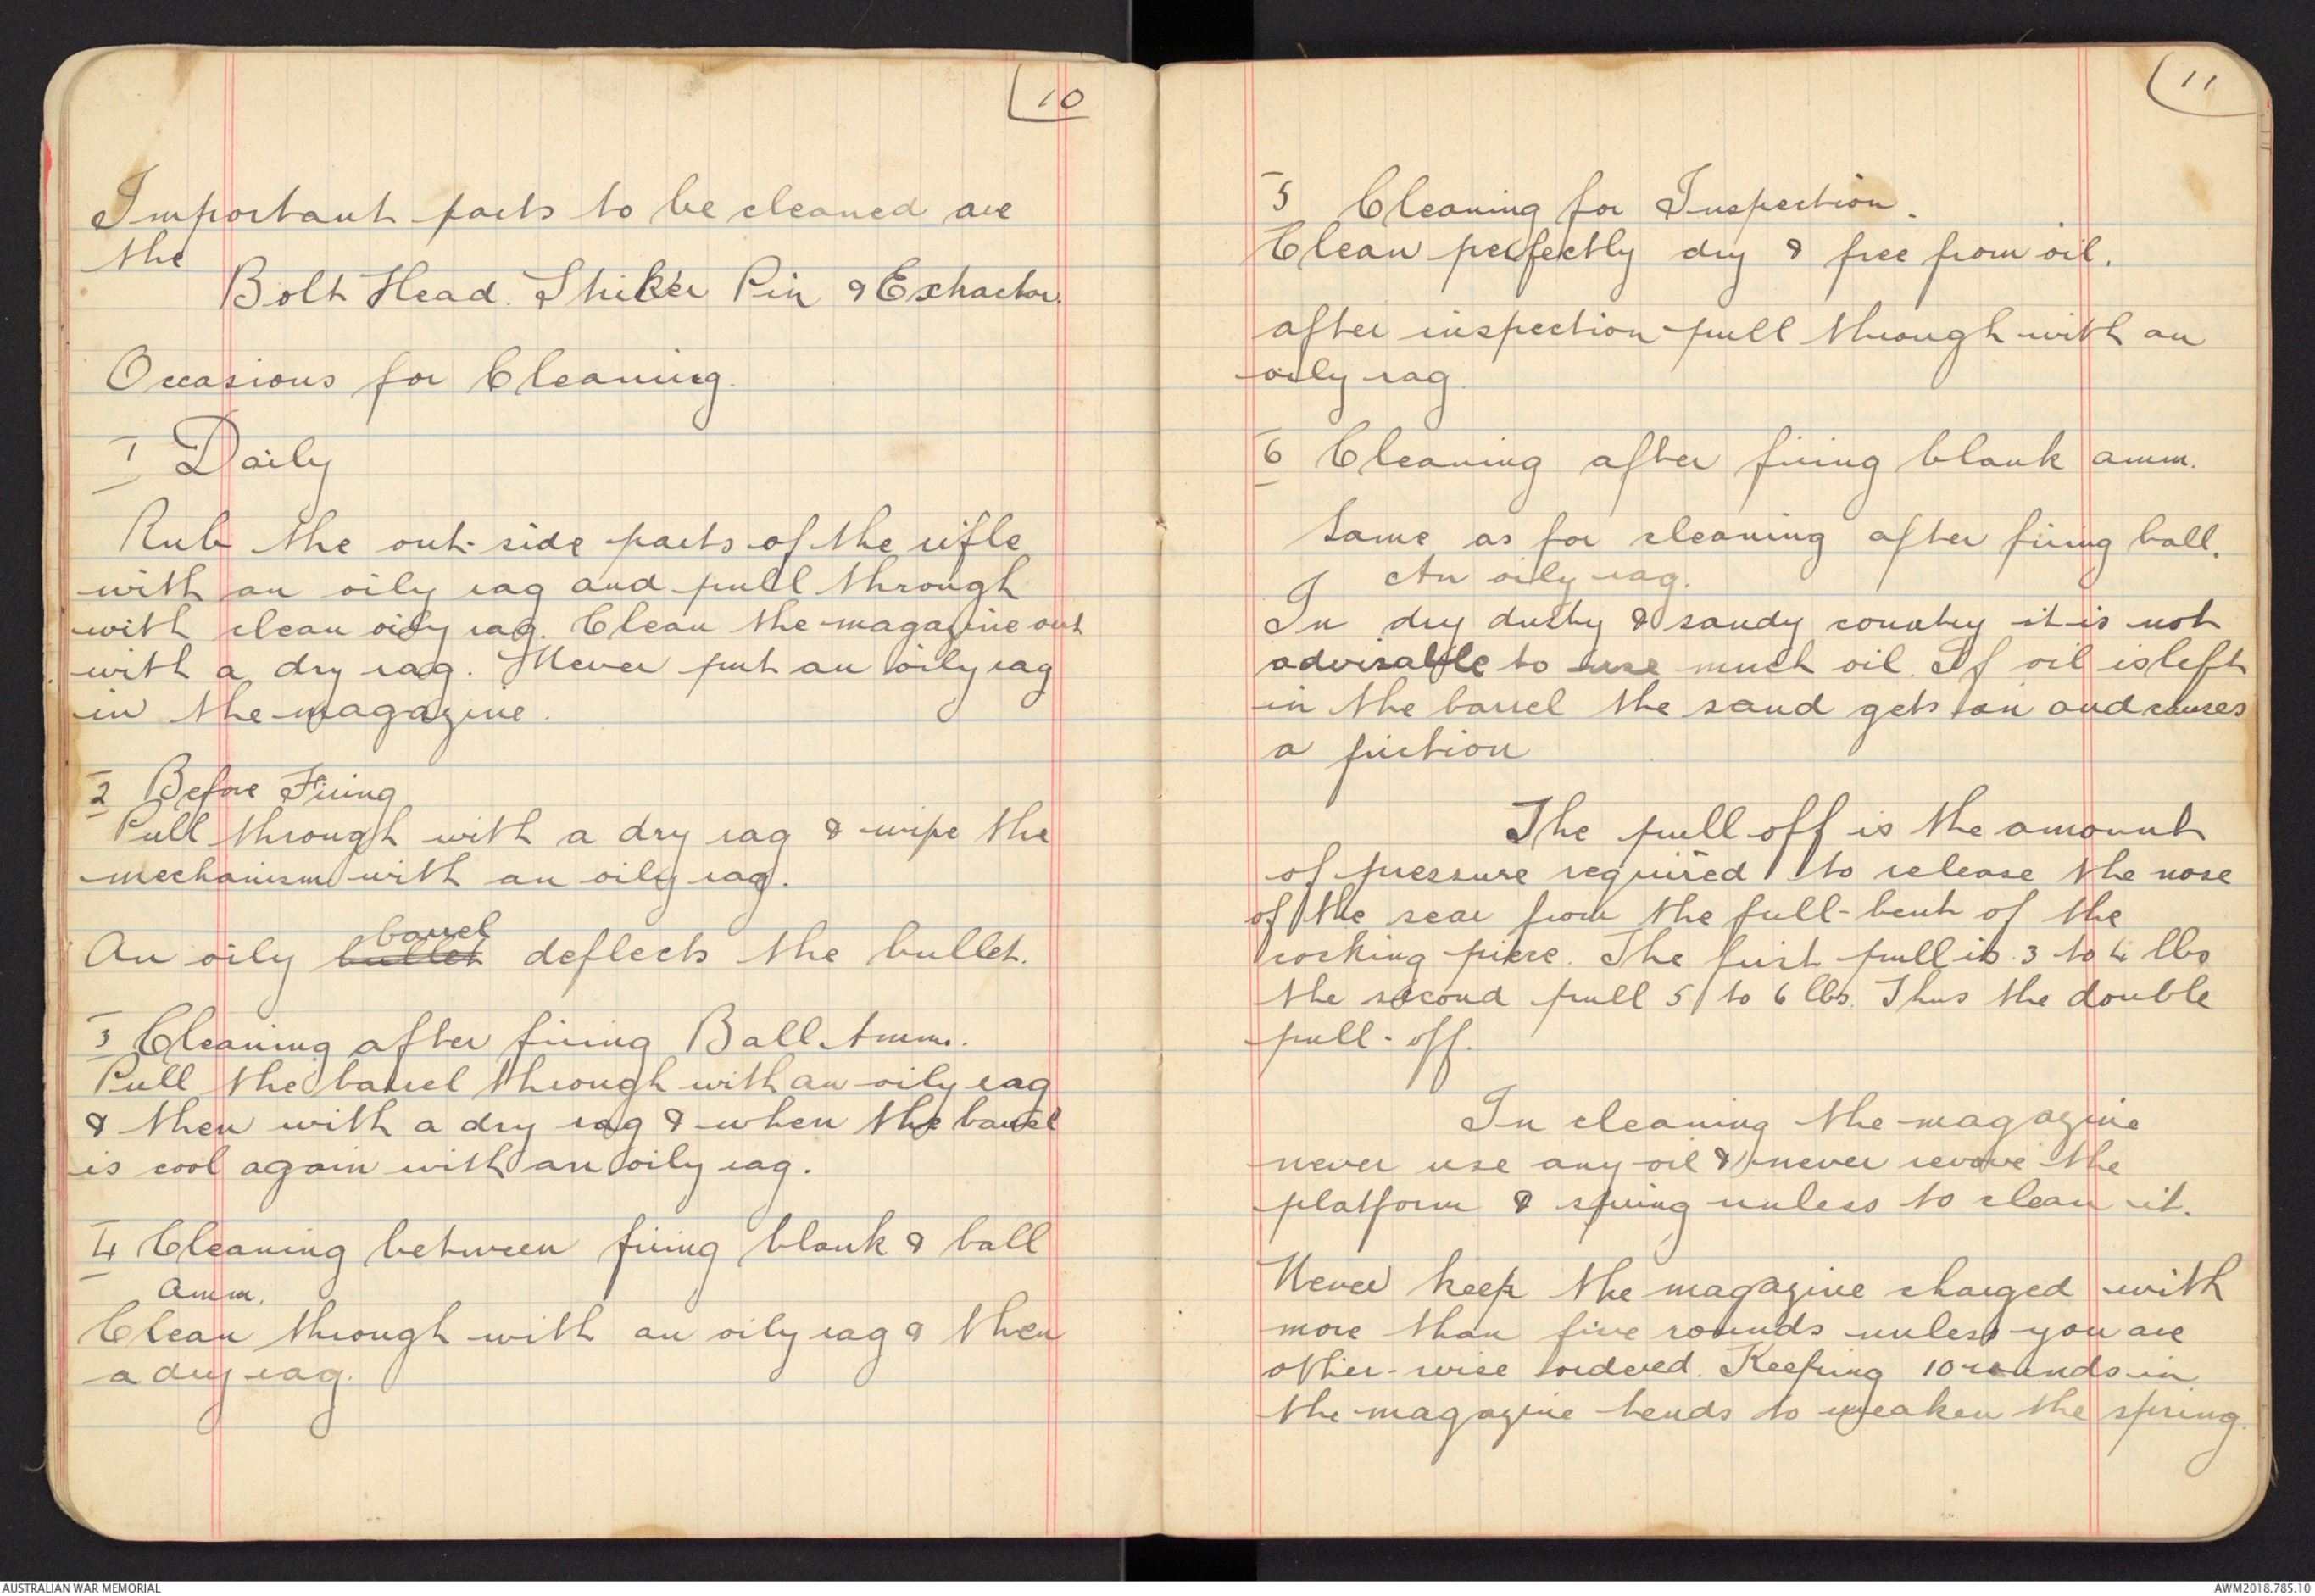 10
Important parts to be cleaned are
the
Bolt Head. Striker Pin & Extractor.
Occasions for Cleaning.
1 Daily
Rub the out-side parts of the rifle
with an oily rag and pull through
with clean oily rag. Clean the magazine out
with a dry rag. Never put an oily rag
in the magazine.
2 Before Firing
Pull through with a dry rag & wipe the
mechanism with an oily rag.
barrel
An oily bullet deflects the bullet.
3 Cleaning after firing Ball Amm.
Pull the barrel through with an oily rag
& then with a dry rag & when the barrel
is cool again with an oily rag.
4 Cleaning between firing blank & ball
Amm.
Clean through with an oily rag & then
a dry rag.
11
5 Cleaning for Inspection.
Clean perfectly dry & free from oil.
after inspection pull through with an
oily rag.
6 Cleaning after firing blank amm.
Same as for cleaning after firing ball.
An oily rag.
In dry dusty & sandy country it is not
advisable to use much oil. If oil is left
in the barrel the sand gets on and causes
a friction
The pull off is the amount
of pressure required to release the nose
of the sear from the full-bent of the
cocking piece. The first pull is 3 to 4 lbs
the second pull 5 to 6 lbs. Thus the double
pull-off.
In cleaning the magazine
never use any oil & never revove the
platform & spring unless to clean it.
Never keep the magazine charged with
more than five rounds unless you are
other-wise ordered. Keeping 10 rounds in
the magazine tends to weaken the spring.
AUSTRALIAN WAR MEMORIAL
AWM2018.785.10